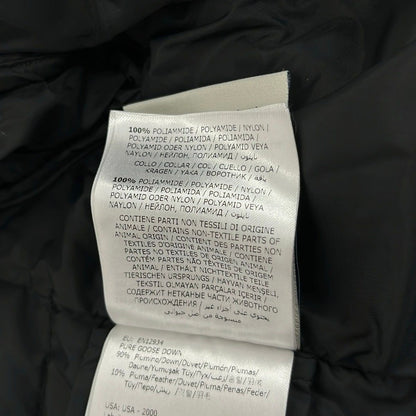 100% POLIAMMIDE / POLYAMIDE / NYLON /
POLYAMID / POLIAMIDA / POLIAMIDA /
POLYAMID ODER NYLON / POLYAMID VEYA
NAYLON / НЕЙЛОН, ПОЛИАМИД / نايلون
COLLO / COLLAR / COL / CUELLO / GOLA /
KRAGEN / YAKA / ВОРОТНИК / ياقة
100% POLIAMMIDE / POLYAMIDE / NYLON /
POLYAMID / POLIAMIDA / POLIAMIDA /
POLYAMID ODER NYLON / POLYAMID VEYA
NAYLON / НЕЙЛОН, ПОЛИАМИД / نايلون
CONTIENE PARTI NON TESSILI DI ORIGINE
ANIMALE / CONTAINS NON-TEXTILE PARTS OF
ANIMAL ORIGIN / CONTIENT DES PARTIES NON
TEXTILES D'ORIGINE ANIMALE / CONTIENE
PARTES NO TEXTILES DE ORIGEN ANIMAL /
CONTÉM PARTES NÃO TÊXTEIS DE ORIGEM
ANIMAL / ENTHÄLT NICHTTEXTILE TEILE
TIERISCHEN URSPRUNGS / HAYVAN MENSELİ,
TEKSTIL OLMAYAN PARÇALAR İÇERİR /
СОДЕРЖИТ НЕТКАНЫЕ ЧАСТИ ЖИВОТНОГО
ПРОИСХОЖДЕНИЯ / يحتوي على أجزاء غير
منسوجة من أصل حيواني
EU: EN12934
PURE GOOSE DOWN
90% Piumino/Down/Duvet/Plumón/Plumas/
Daune/Yumuşak Tüy/Пух/
10% Piuma/Feather/Duvet/Pluma/Penas/Feder/
Tüy/
USA: USA - 2000